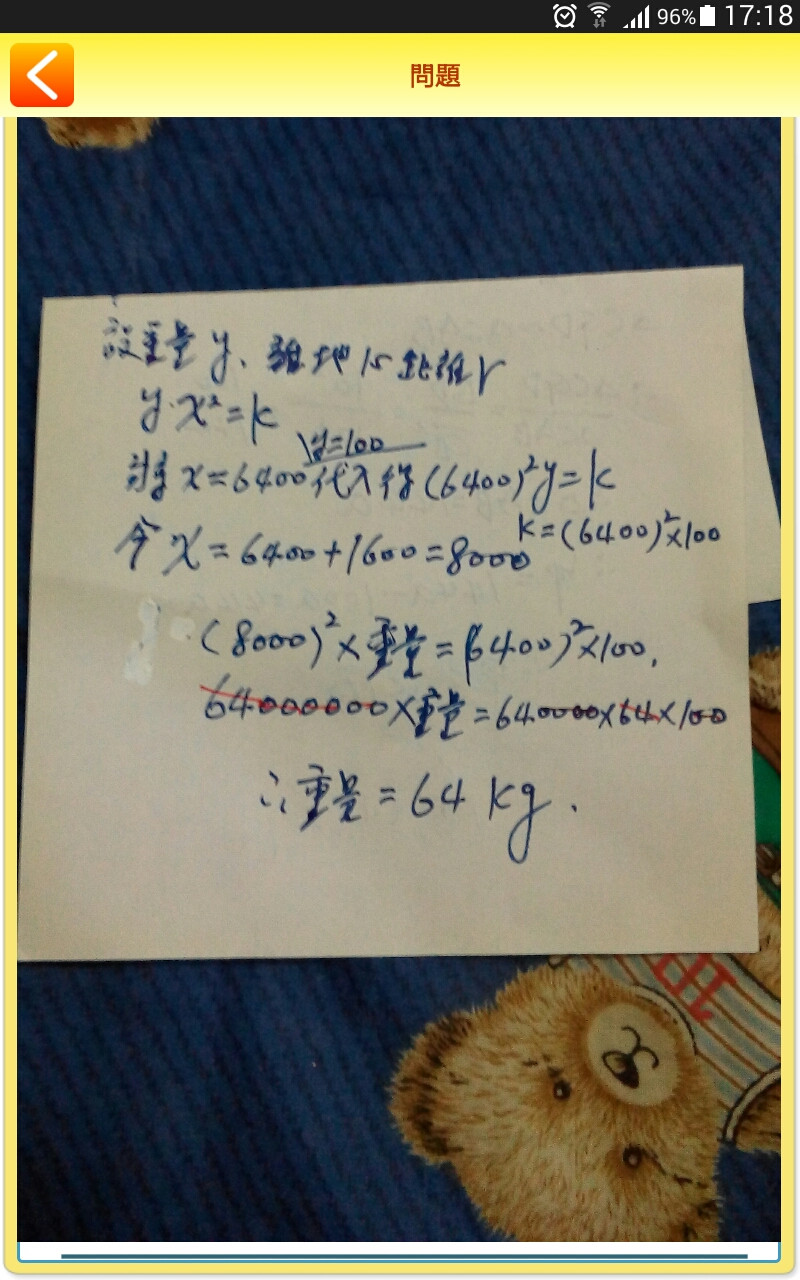 96% 17:18
問題
設重量y、離地心距離r
y·x²=k
y=100
將x=6400代入得(6400)²y=k
k=(6400)²×100
令x=6400+1600=8000
(8000)²×重量=(6400)²×100,
64000000×重量=640000×64×100
∴重量=64 kg.